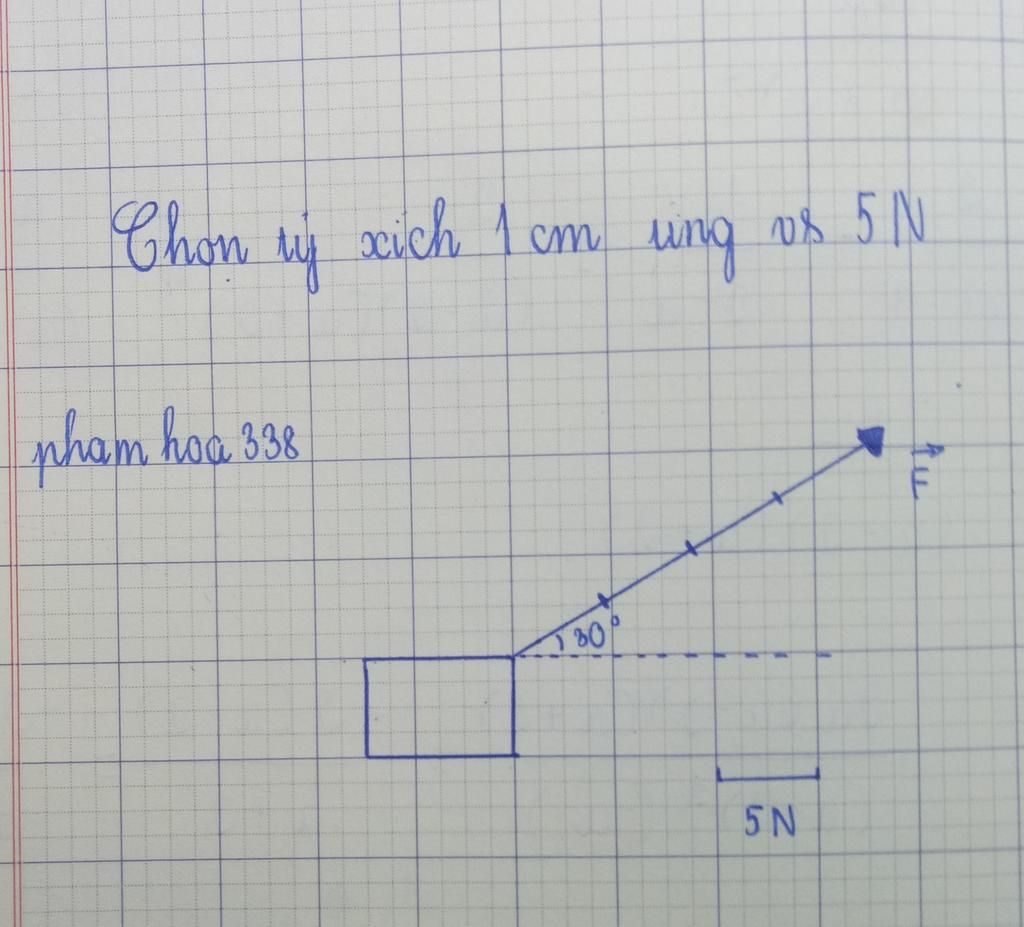 Chọn tỷ xích 1 cm ứng vs 5 N
pham hoa 338
F
30°
5 N